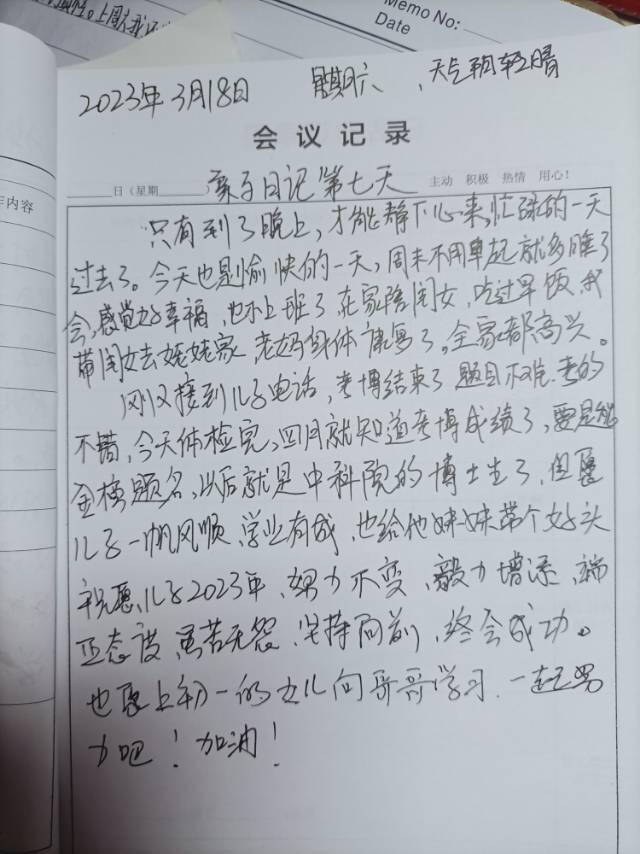 性。上周
Memo No:
Date
2023年3月18日 星期六、天气晴
会议记录
日(星期 亲子日记第七天 主动 积极 热情 用心!
作内容
只有到了晚上,才能静下心来,忙碌的一天
过去了。今天也是愉快的一天,周末不用早起就多睡了
会,感觉好幸福,也不上班了,在家陪闺女,吃过早饭,我
带闺女去姥姥家,老妈身体康复了,全家都高兴。
刚又接到儿子电话,考博结束了,题目不难,考的
不错,今天体检完,四月就知道考博成绩了,要是能
金榜题名,以后就是中科院的博士生了,但愿
儿子一帆风顺,学业有成,也给他妹妹带个好头
祝愿儿子2023年,努力不变,毅力增添,端
正态度,喜苦无怨,坚持向前,终会成功。
也愿上初一的女儿向哥哥学习,一起努
力吧!加油!